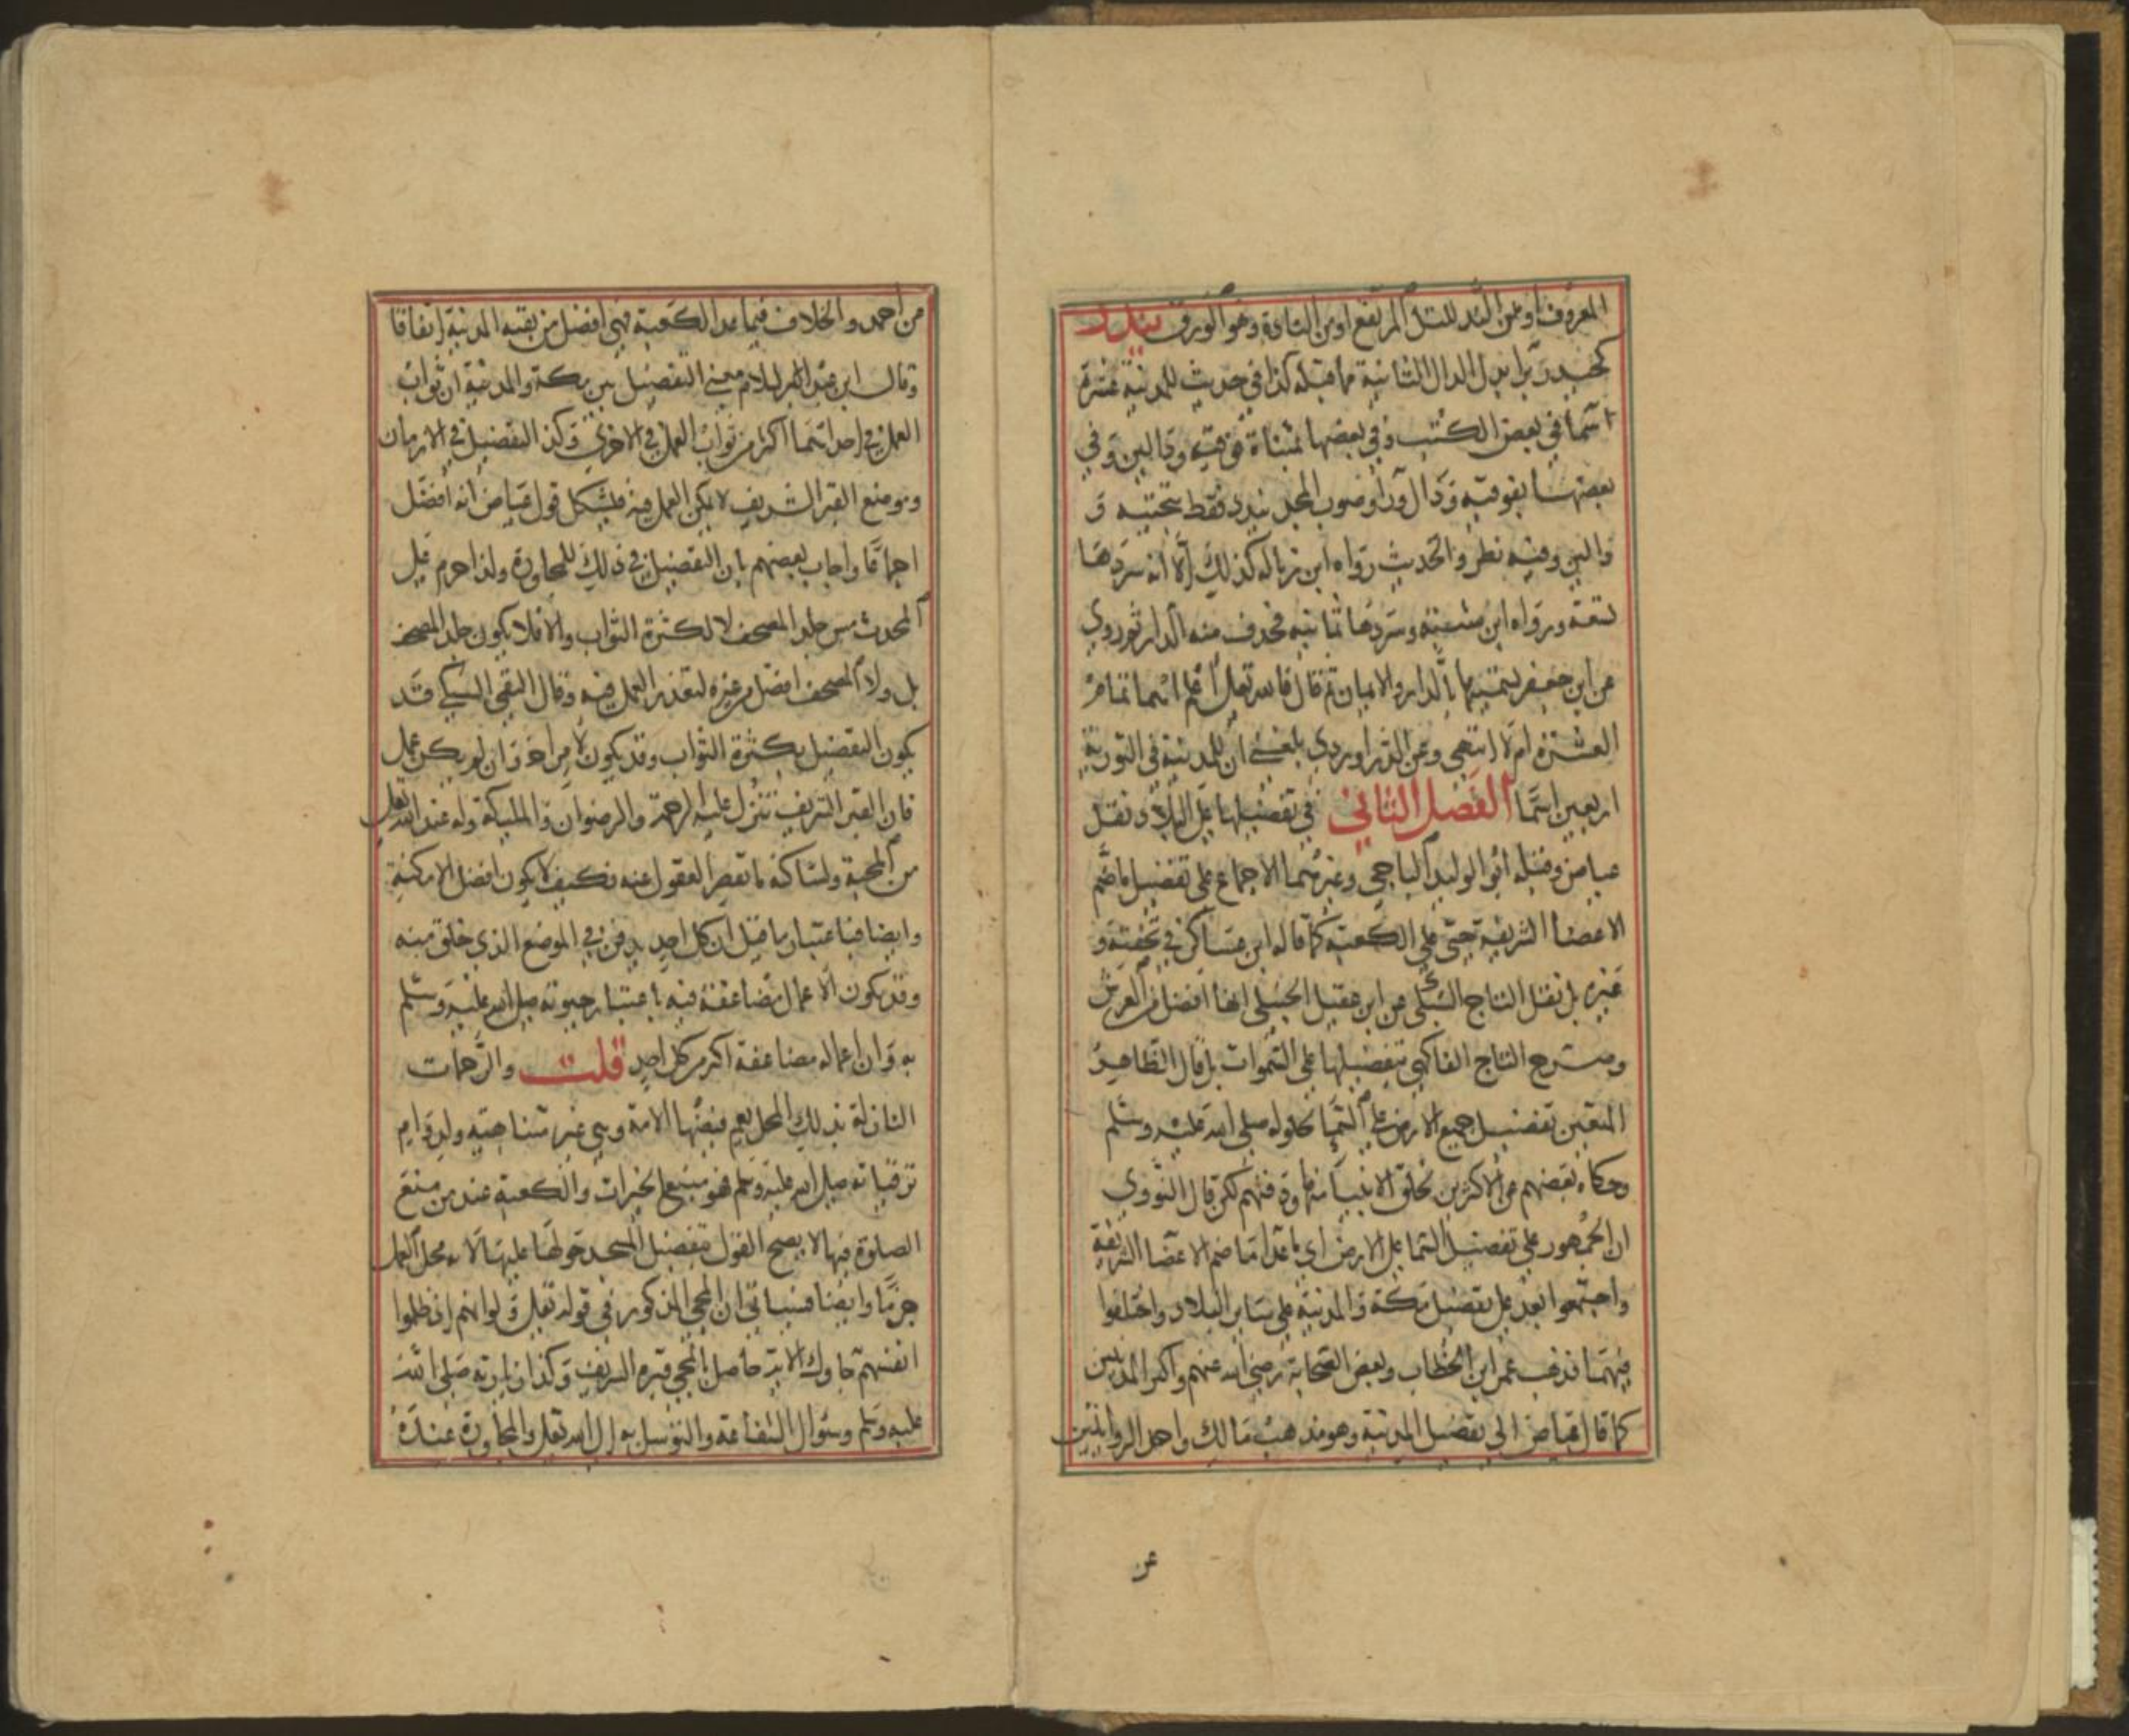 المعروف او من الند للتل المرتفع او من النادة وهو الورق يندر
كحيدر بابدال الدال الثانية مما قبله كذا في حديث للمدينة عشرة
اسما في بعض الكتب وفي بعضها بمثناة فوقية ودالين وفي
بعضها بفوقية ودال ورا وصوب المجد يندد فقط بتحتية و
دالين وفيه نظر والحديث رواه ابن زبالة كذلك الا انه سردها
تسعة ورواه ابن شبة وسردها ثمانية فحذف منه الدار ثم روي
عن ابن جعفر تسميتها بالدار والايمان ثم قال فالله تعالى اعلم اهما تمام
العشرة ام لا انتهى وعن الدراوردي بلغني ان للمدينة في التورية
اربعين اسما الفصل الثاني في تفضيلها على البلاد ونقل
عياض وقبله ابو الوليد الباجي وغيرهما الاجماع على تفضيل ما ضم
الاعضا الشريفة حتى على الكعبة كما قاله ابن عساكر في تحفته و
غيره بل نقل التاج السبكي عن ابن عقيل الحنبلي انها افضل من العرش
وصرح التاج الفاكهي بتفضيلها على السموات بل قال الظاهر
المتعين تفضيل جميع الارض على السما لحلوله صلى الله عليه وسلم
وحكاه بعضهم عن الاكثرين لخلق الانبيا منها ودفنهم لكن قال النووي
ان الجمهور على تفضيل السما على الارض اي ما عدا ما ضم الاعضا الشريفة
واجمعوا بعد على تفضيل مكة والمدينة على سائر البلاد واختلفوا
فيهما فذهب عمر ابن الخطاب وبعض الصحابة رضي الله عنهم واكثر المدنيين
كما قال عياض الى تفضيل المدينة وهو مذهب مالك واحدى الروايتين
عن
من احمد والخلاف فيما عدا الكعبة فهي افضل من بقية المدينة اتفاقا
وقال ابن عبد السلام معنى التفضيل بين مكة والمدينة ان ثواب
العمل في احداهما اكثر من ثواب العمل في الاخرى وكذا التفضيل في الازمان
وموضع القبر الشريف لا يمكن العمل فيه فيشكل قول عياض انه افضل
اجماعا واجاب بعضهم بان التفضيل في ذلك للمجاورة ولذا حرم على
المحدث مس جلد المصحف لا لكثرة الثواب والا فلا يكون جلد المصحف
بل ولا المصحف افضل من غيره لتعذر العمل فيه وقال التقي السبكي قد
يكون التفضيل بكثرة الثواب وقد يكون لامر اخر وان لم يكن عمل
فان القبر الشريف تنزل عليه الرحمة والرضوان والمليكة وله عند الله تعالى
من المحبة ولساكنه ما تقصر العقول عنه فكيف لا يكون افضل الامكنة
وايضا فباعتبار ما قيل ان كل احد يدفن في الموضع الذي خلق منه
وقد يكون الاعمال مضاعفة فيه باعتبار حيوته صلى الله عليه وسلم
به وان اعماله مضاعفة اكثر من كل احد قلت والرحمات
النازلة بذلك المحل يعم فيضها الامة وهي غير متناهية ولدوام
ترقياته صلى الله عليه وسلم فهو منبع الخيرات والكعبة عند من منع
الصلوة فيها لا يصح القول بتفضيل المسجد حولها عليها لانه محل العمل
جزما وايضا فسياتي ان المجي المذكور في قوله تعالى ولو انهم اذ ظلموا
انفسهم جاوك الاية حاصل بالمجي قبره الشريف وكذا زيارته صلى الله
عليه وسلم وسوال الشفاعة والتوسل به الى الله تعالى والمجاورة عنده